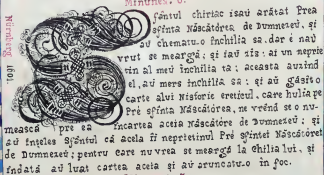 Minunea. 6.
Sfântul chiriac isau arătat Prea
sfinta Născătórea de Dumnezeŭ; și
au chemat-o în chilia sa. dar ea nau
vrut se mearga; și iau zis: ai un neprie
tin al meu în chilia ta; aceasta auzind
el, au mers în chilia sa; și au găsit o
carte alui Nistorie ereticul, care hulia pe
Pré sfinta Născătórea, ne vrênd se o nu-
mească pre ea în cartea aceia Născătóre de Dumnezeŭ; și
au înțeles Sfântul că aceia îi neprietinul Pré Sfintei Născătóre
de Dumnezeŭ; pentru care nu vrea se mearga la Chilia lui, și
îndată au luat cartea aceia și au aruncatu-o în foc.
Nürnberg.
1001